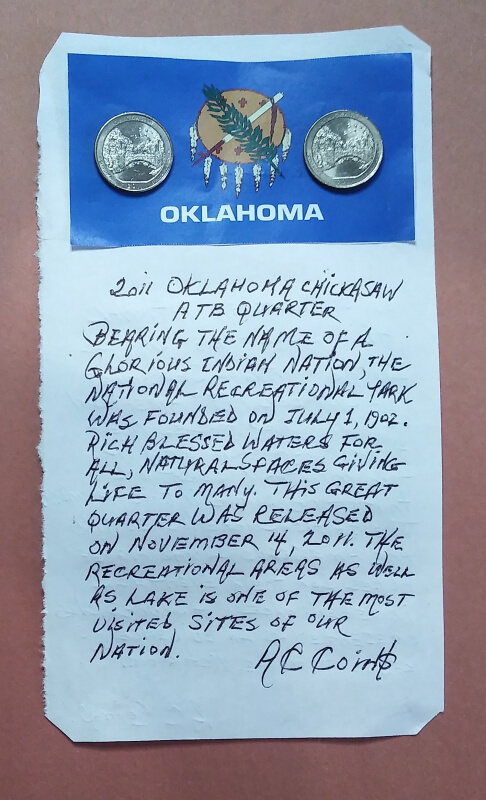 OKLAHOMA
2011 OKLAHOMA CHICKASAW
ATB QUARTER
BEARING THE NAME OF A
GLORIOUS INDIAN NATION, THE
NATIONAL RECREATIONAL PARK
WAS FOUNDED ON JULY 1, 1902.
RICH BLESSED WATERS FOR
ALL, NATURAL SPACES GIVING
LIFE TO MANY. THIS GREAT
QUARTER WAS RELEASED
ON NOVEMBER 14, 2011. THE
RECREATIONAL AREAS AS WELL
AS LAKE IS ONE OF THE MOST
VISITED SITES OF OUR
NATION.
AC Coins